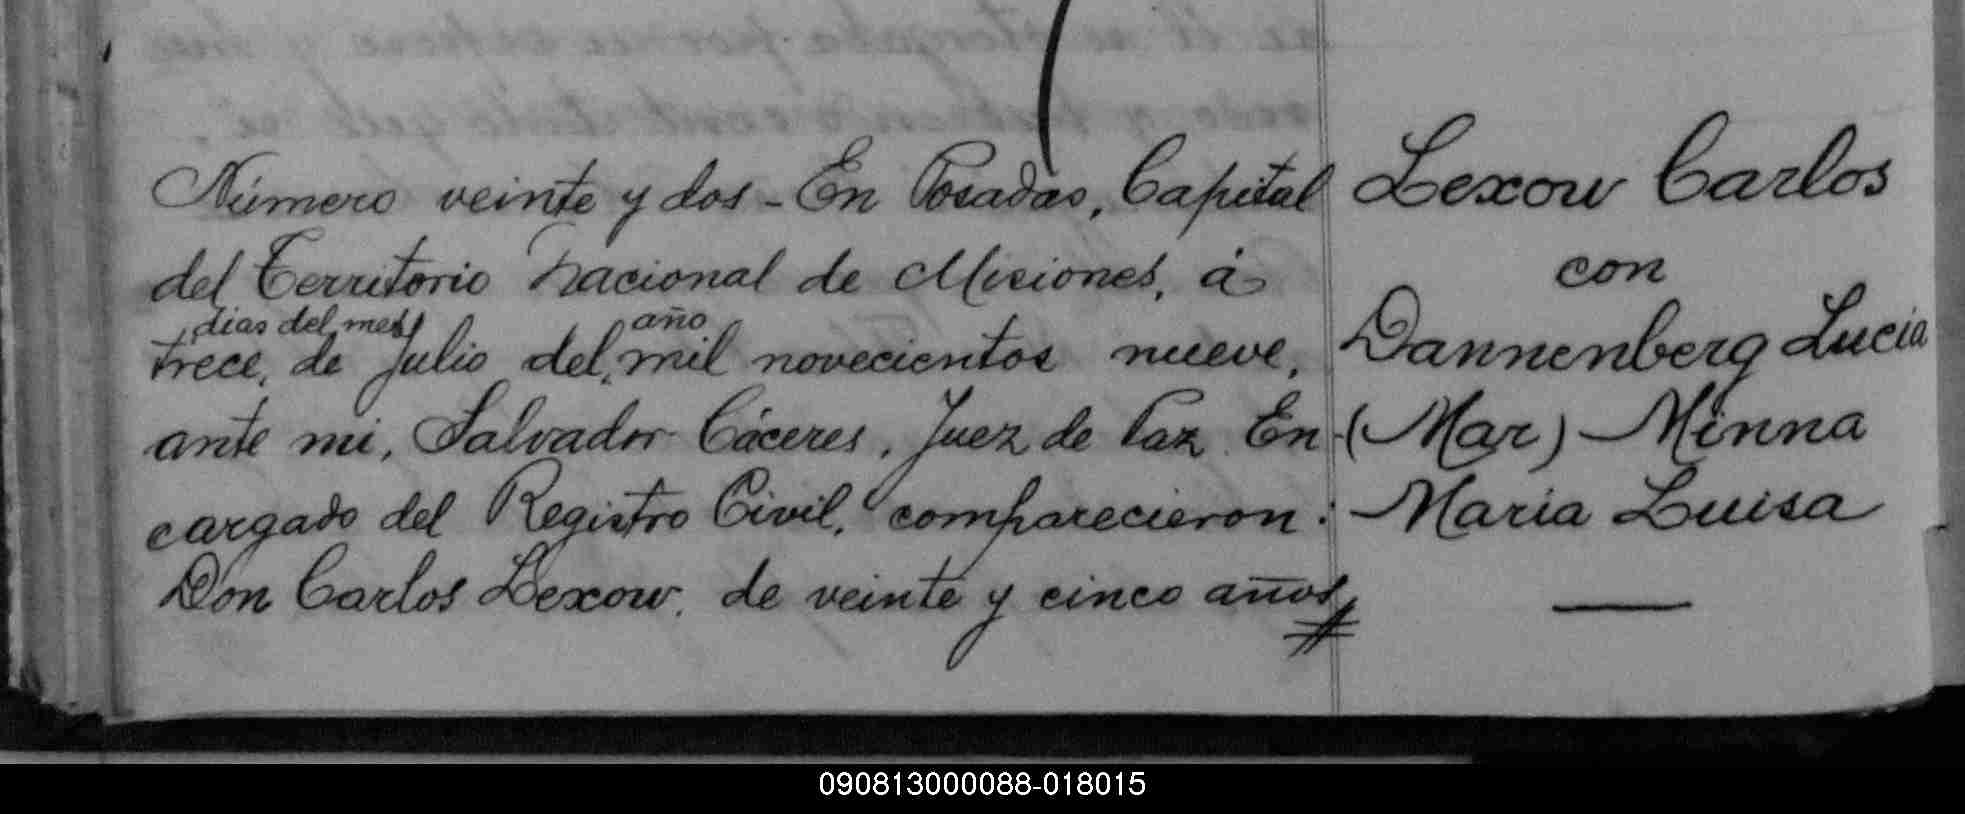 Número veinte y dos - En Posadas, Capital
del Territorio Nacional de Misiones, á
días del mes año
trece, de Julio del, mil novecientos nueve,
ante mi, Salvador Cáceres, Juez de Paz En
cargado del Registro Civil, comparecieron:
Don Carlos Lexow, de veinte y cinco años,
Lexow Carlos
con
Dannenberg Lucia
(Mar) Minna
Maria Luisa
090813000088-018015